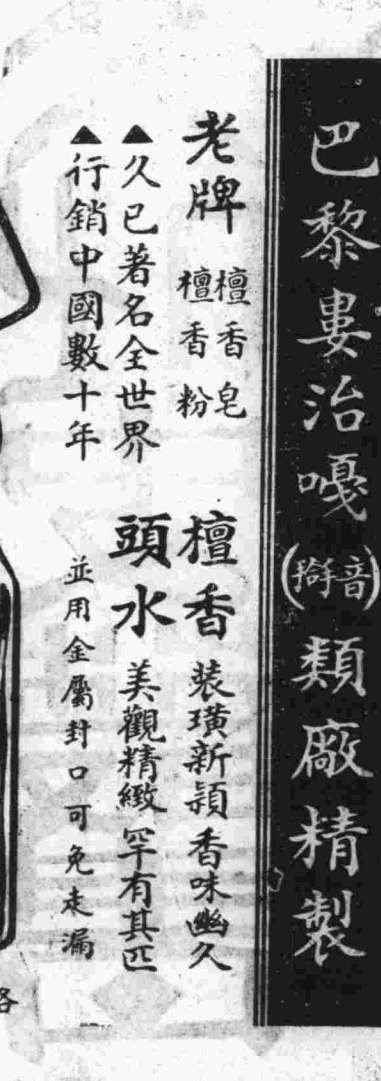 巴黎婁治嘎(音𢭏)類廠精製
老牌 檀香皂
檀香粉
▲久已著名全世界
▲行銷中國數十年
檀香
頭水
裝璜新穎香味幽久
美觀精緻罕有其匹
並用金屬封口可免走漏